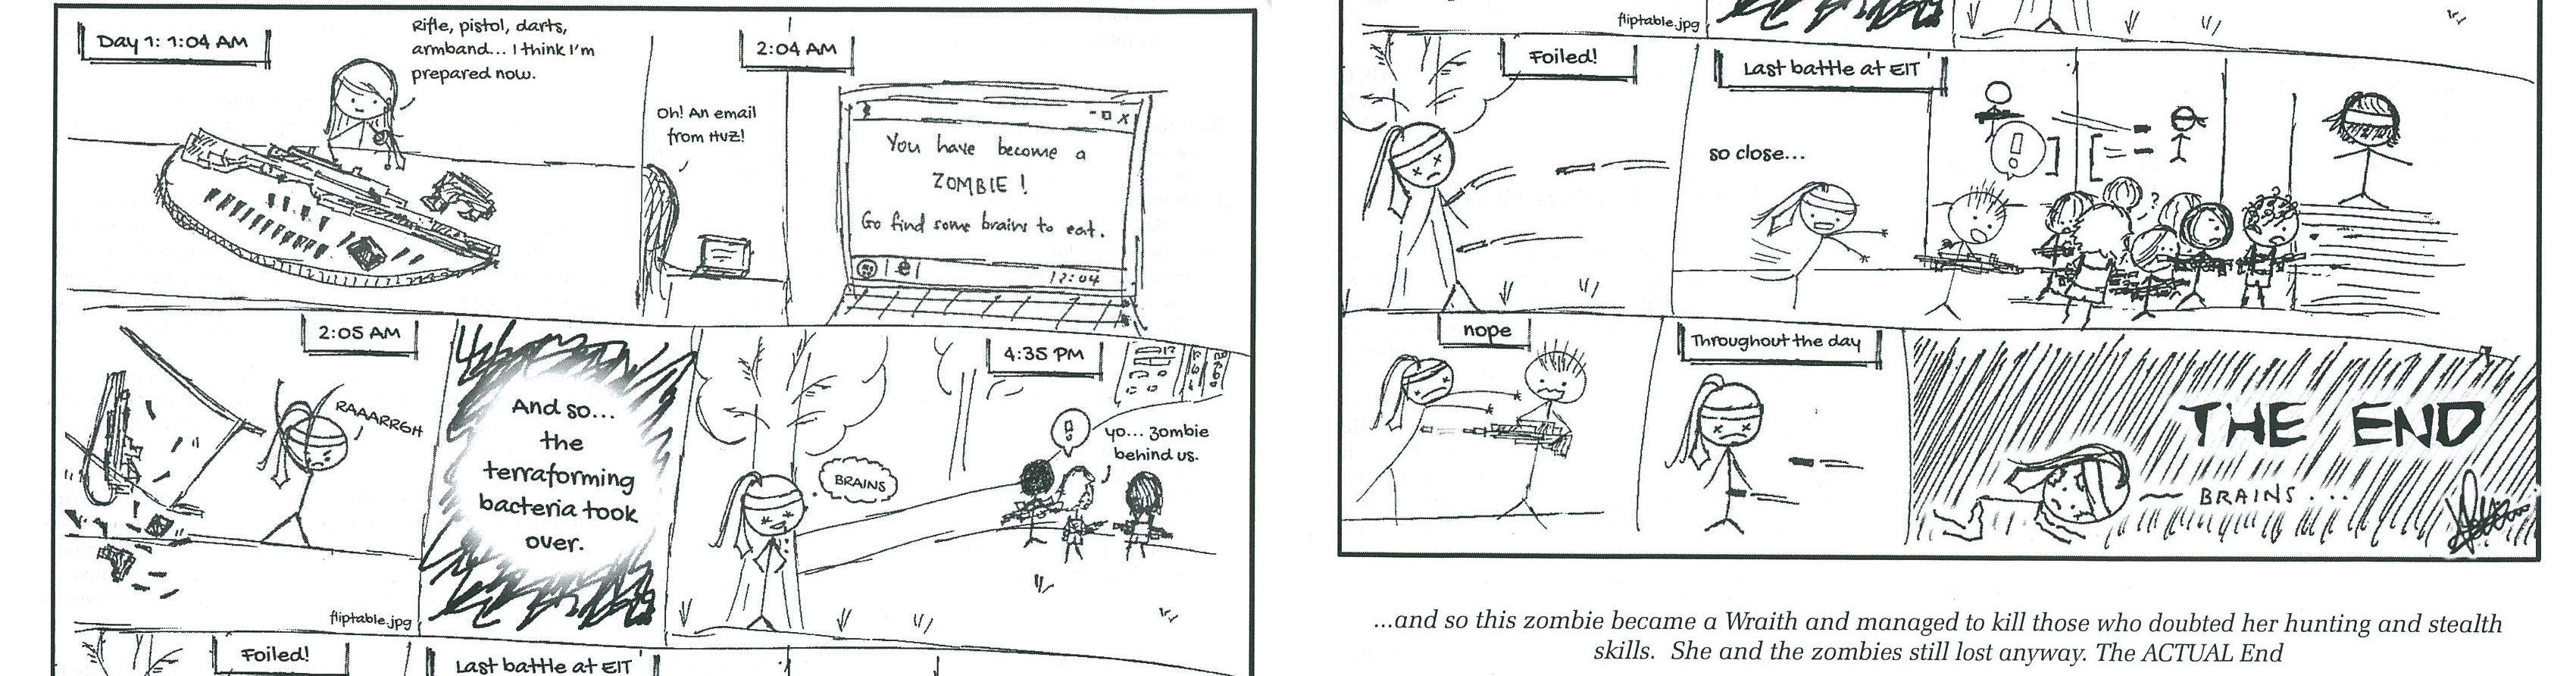 Day 1: 1:04 AM
Rifle, pistol, darts,
armband... I think I'm
prepared now.
2:04 AM
Oh! An email
from HVZ!
You have become a
ZOMBIE!
Go find some brains to eat.
12:04
2:05 AM
RAAARRGH
fliptable.jpg
And so...
the
terraforming
bacteria took
over.
4:35 PM
BRAINS
!
yo... zombie
behind us.
Foiled!
Last battle at EIT
fliptable.jpg
Foiled!
Last battle at EIT
so close...
!
?
?
nope
Throughout the day
THE END
BRAINS...
...and so this zombie became a Wraith and managed to kill those who doubted her hunting and stealth
skills. She and the zombies still lost anyway. The ACTUAL End